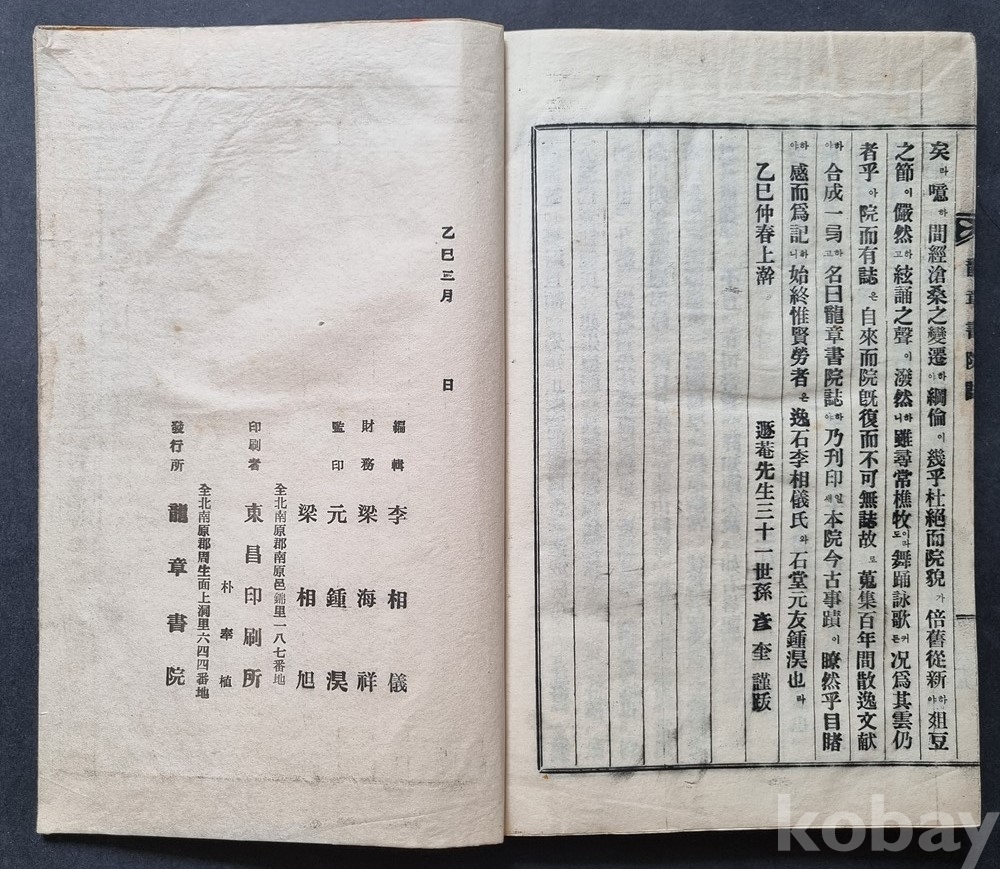 矣라噫하間經滄桑之變遷하야綱倫이幾乎杜絕而院貌가倍舊從新하야俎豆
之節이儼然하고絃誦之聲이潑然하니雖尋常樵牧이라도舞踊詠歌커든况爲其雲仍
者乎아院而有誌은自來而院旣復而不可無誌故로蒐集百年間散逸文献
하야合成一号하고名曰龍章書院誌하야乃刊印일새本院今古事蹟이瞭然乎目睹
하야感而爲記하니始終惟賢勞者은逸石李相儀氏와石堂元友鍾淏也라
乙巳仲春上澣
遯菴先生三十一世孫彦奎謹跋
龍章書院誌
乙巳三月 日
編輯 李相儀
財務 梁海祥
監印 元鍾淏
梁相旭
全北南原郡南原邑錦里一八七番地
印刷者 東昌印刷所
朴奉植
全北南原郡周生面上洞里六四四番地
發行所 龍章書院
kobay